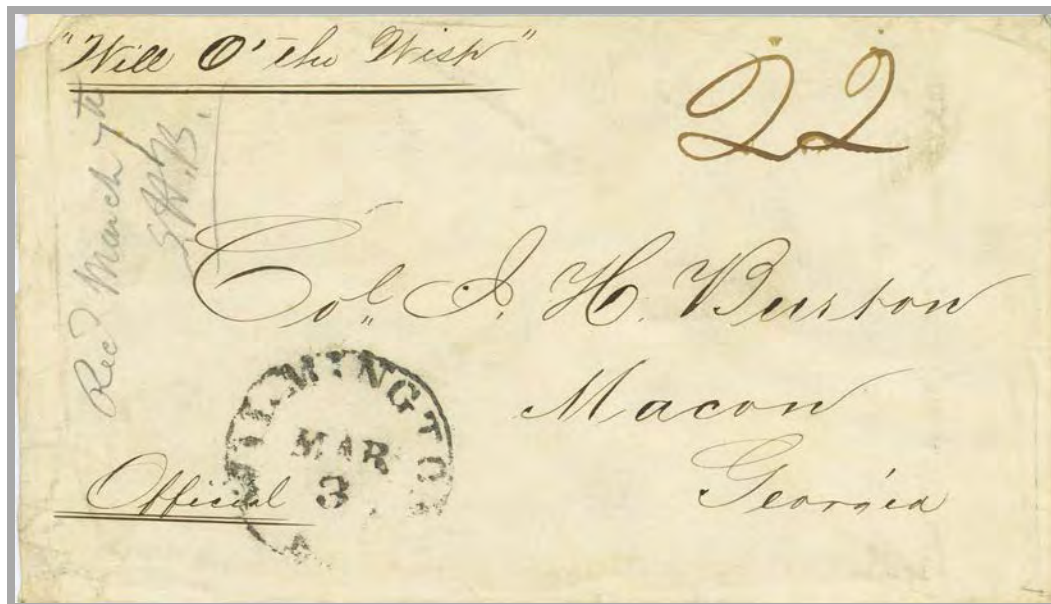 "Will O' the Wisp"
22
Rec'd March 7th
J.H.B.
Col. J. H. Burton
Macon
Georgia
WILMINGTON
MAR
3
Official